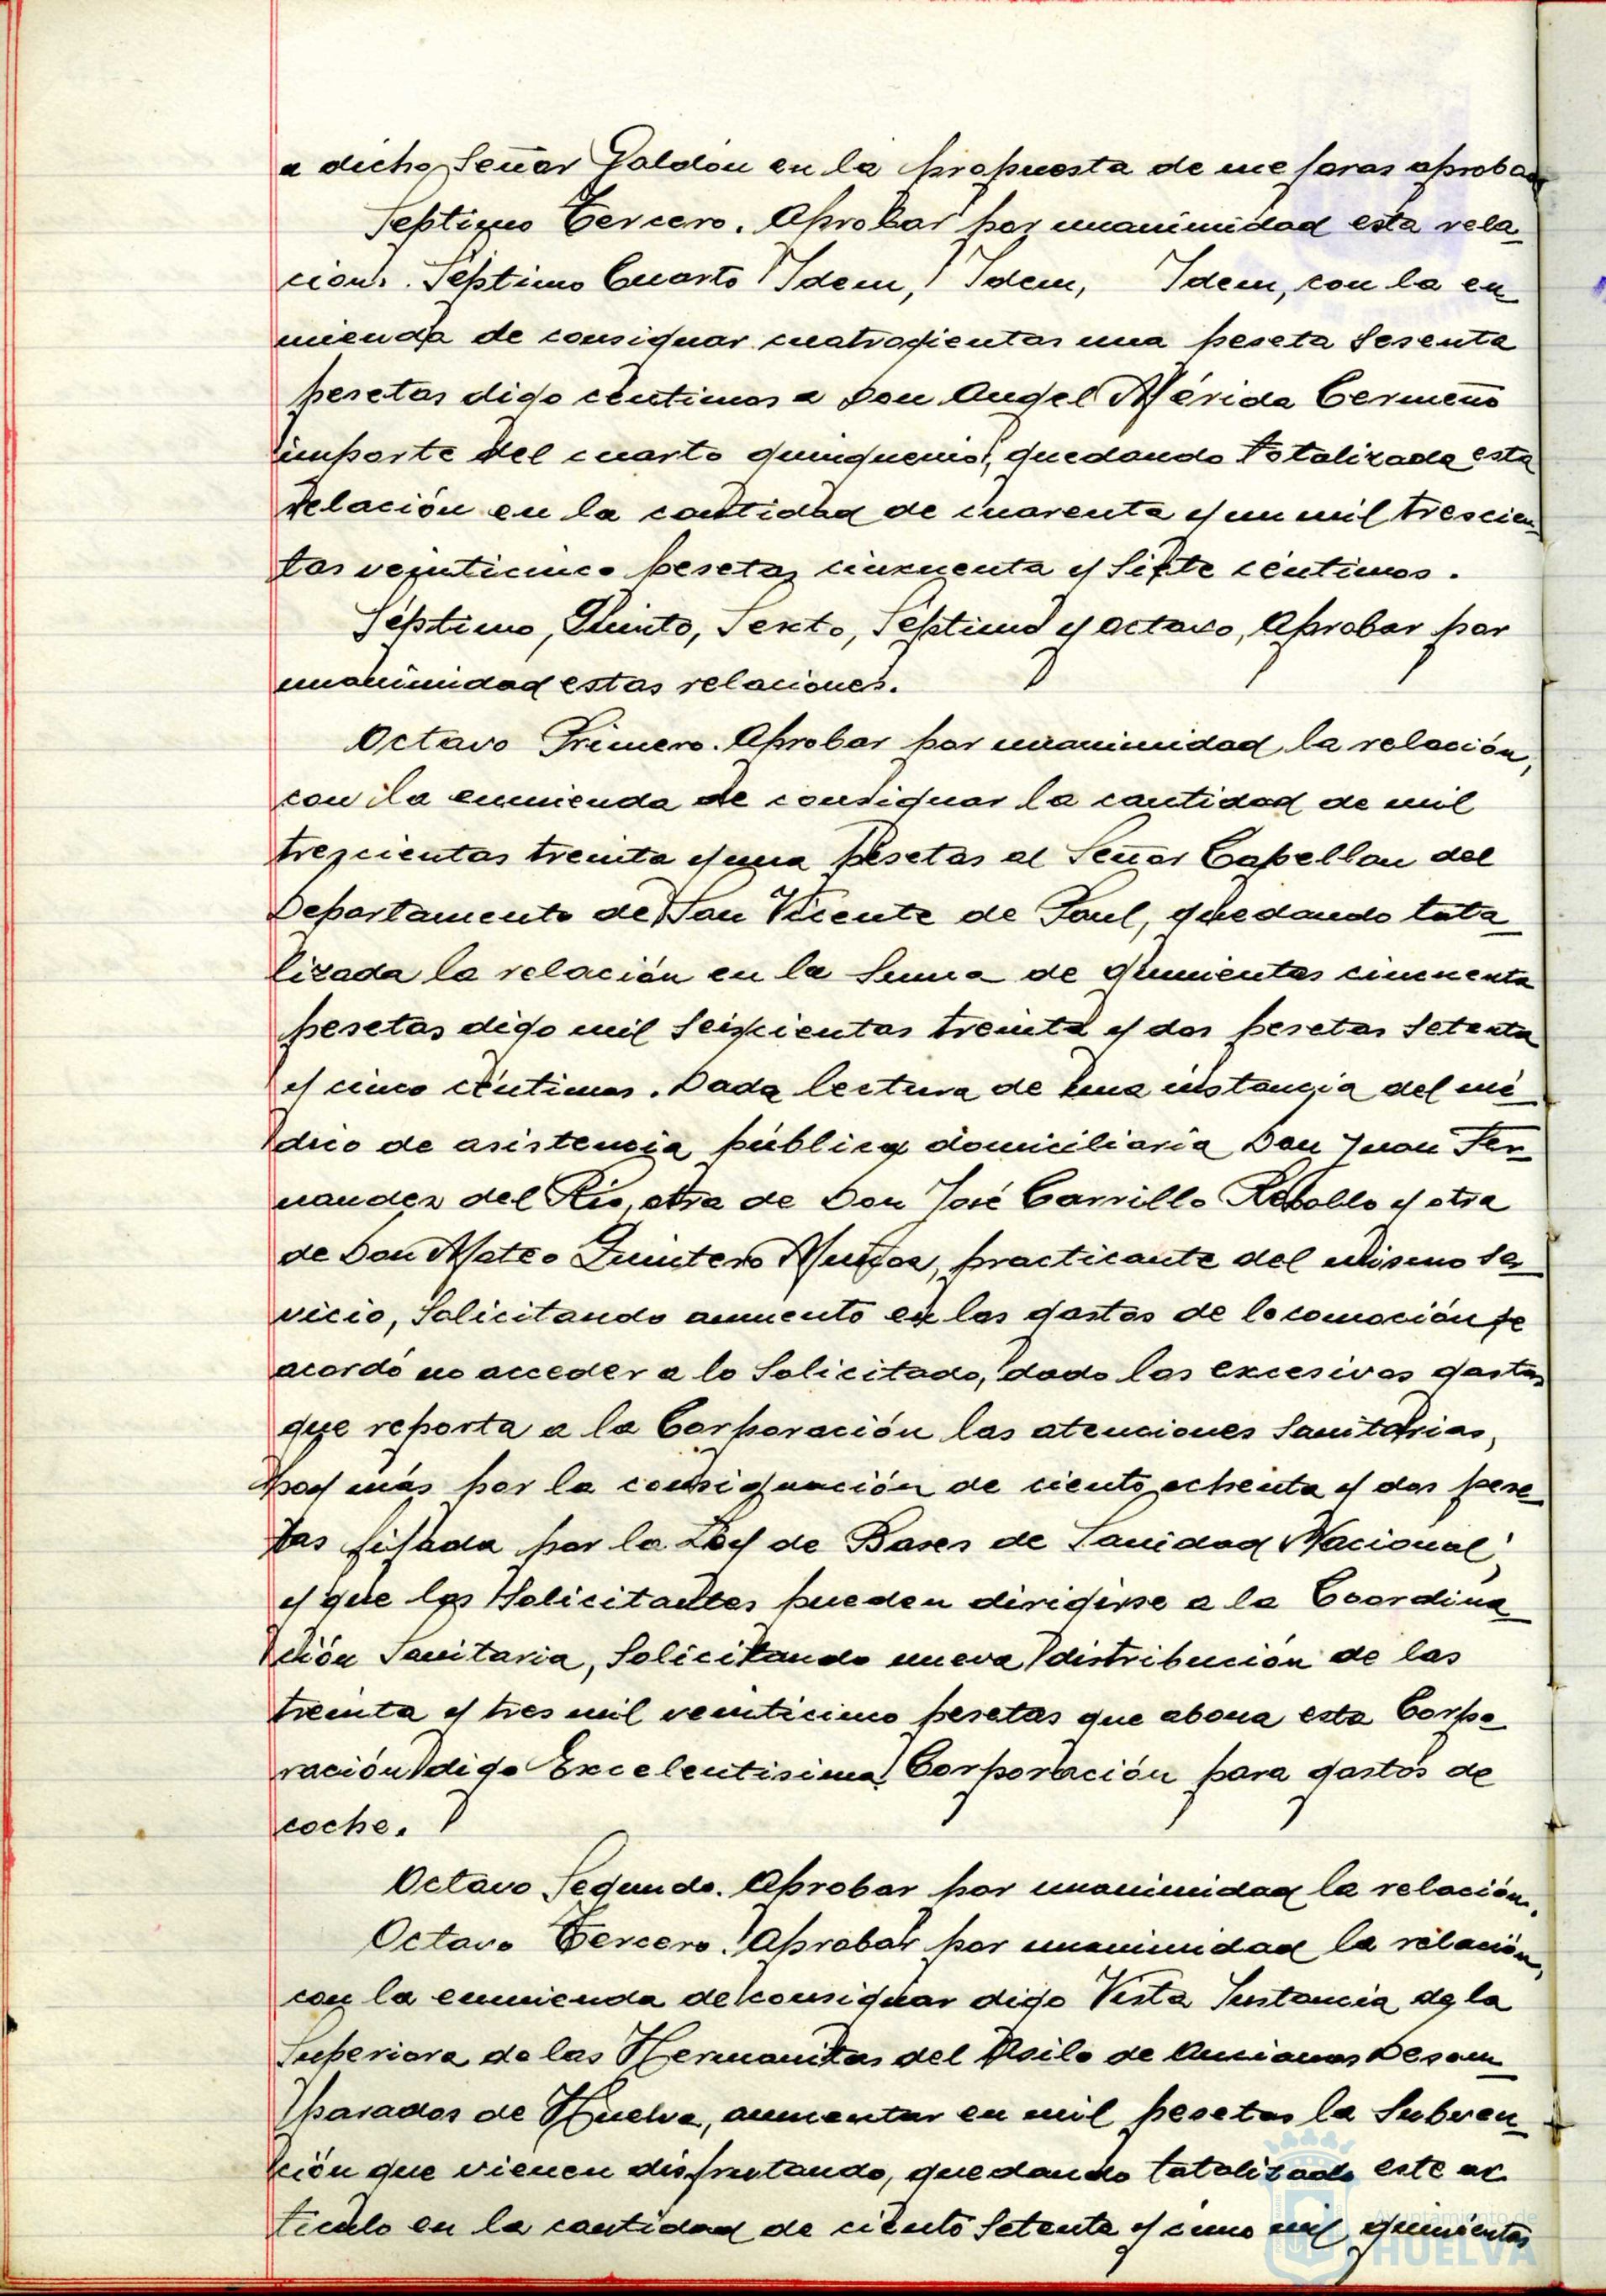 a dicho Señor Galdón en la propuesta de mejoras aprobada
Septimo Tercero. Aprobar por unanimidad esta rela-
cion. Séptimo Cuarto Idem, Idem, Idem, con la en-
mienda de consignar cuatrocientas una peseta sesenta
pesetas digo céntimos a Don Angel Mérida Cermeño
importe del cuarto quinquenio, quedando totalizada esta
relación en la cantidad de cuarenta y un mil trescien-
tas veinticinco pesetas cincuenta y siete céntimos.
Séptimo, Quinto, Sexto, Séptimo y octavo, Aprobar por
unanimidad estas relaciones.
Octavo Primero. Aprobar por unanimidad la relación,
con la enmienda de consignar la cantidad de mil
trescientas treinta y una pesetas al Señor Capellan del
Departamento de San Vicente de Paul, quedando tota-
lizada la relación en la suma de quinientas cincuenta
pesetas digo mil seiscientas treinta y dos pesetas setenta
y cinco céntimos. Dada lectura de una instancia del mé-
dico de asistencia pública domiciliaria Don Juan Fer-
nandez del Rio, otra de Don José Carrillo Rebollo y otra
de Don Mateo Quintero Muñoz, practicante del mismo ser-
vicio, solicitando aumento en los gastos de locomoción se
acordó no acceder a lo solicitado, dado los excesivos gastos
que reporta a la Corporación las atenciones sanitarias,
hoy más por la consignación de ciento ochenta y dos pese-
tas fijada por la Ley de Bases de Sanidad Nacional,
y que los solicitantes pueden dirigirse a la Coordina-
ción Sanitaria, solicitando nueva distribución de las
treinta y tres mil veinticinco pesetas que abona esta Corpo-
ración digo Excelentisima Corporación para gastos de
coche.
Octavo Segundo. Aprobar por unanimidad la relación.
Octavo Tercero. Aprobar por unanimidad la relación,
con la enmienda de consignar digo Vista Instancia de la
Superiora de las Hermanitas del Asilo de Ancianos Desam-
parados de Huelva, aumentar en mil pesetas la subven-
ción que vienen disfrutando, quedando totalizado este ar-
ticulo en la cantidad de ciento setenta y cinco mil quinientas
Ayuntamiento de
HUELVA